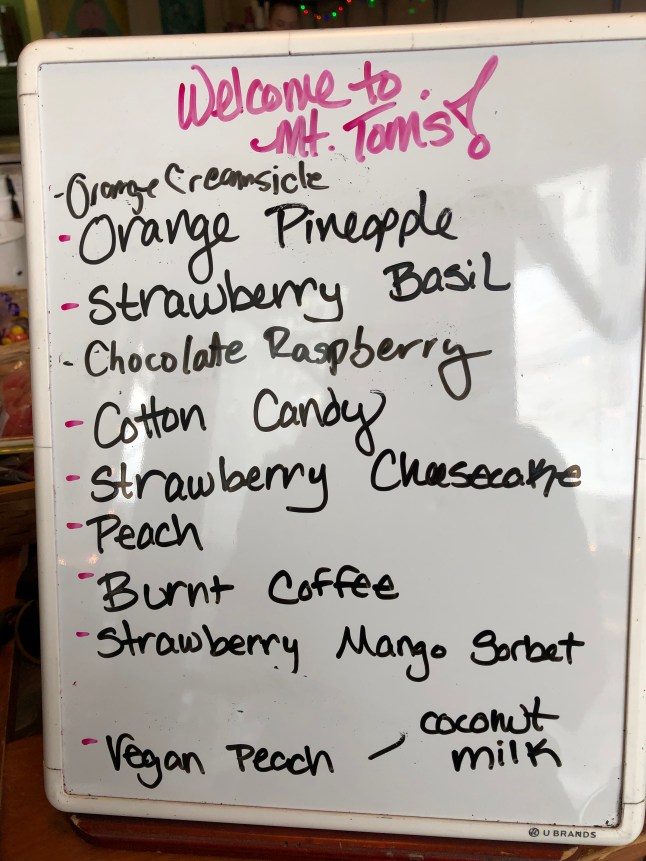 Welcome to
Mt. Toms!
- Orange Creamsicle
- Orange Pineapple
- Strawberry Basil
- Chocolate Raspberry
- Cotton Candy
- Strawberry Cheesecake
- Peach
- Burnt Coffee
- Strawberry Mango Sorbet
- Vegan Peach / coconut
milk
U BRANDS